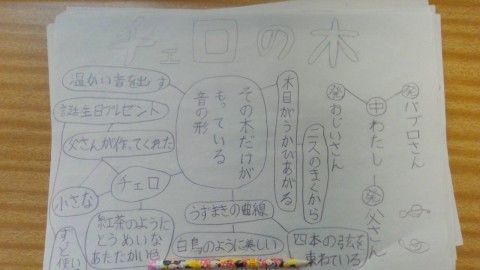 チェロの木
温かい音を出す
誕生日プレゼント
父さんが作ってくれた
チェロ
小さな
ずっと使い
紅茶のように
とうめいな
あたたかい色
その木だけが
もっている
音の形
うずまきの曲線
白鳥のように美しい
四本の弦を
束ねている
木目がうかびあがる
ニスのまくから
おじいさん
わたし
パブロさん
父さん